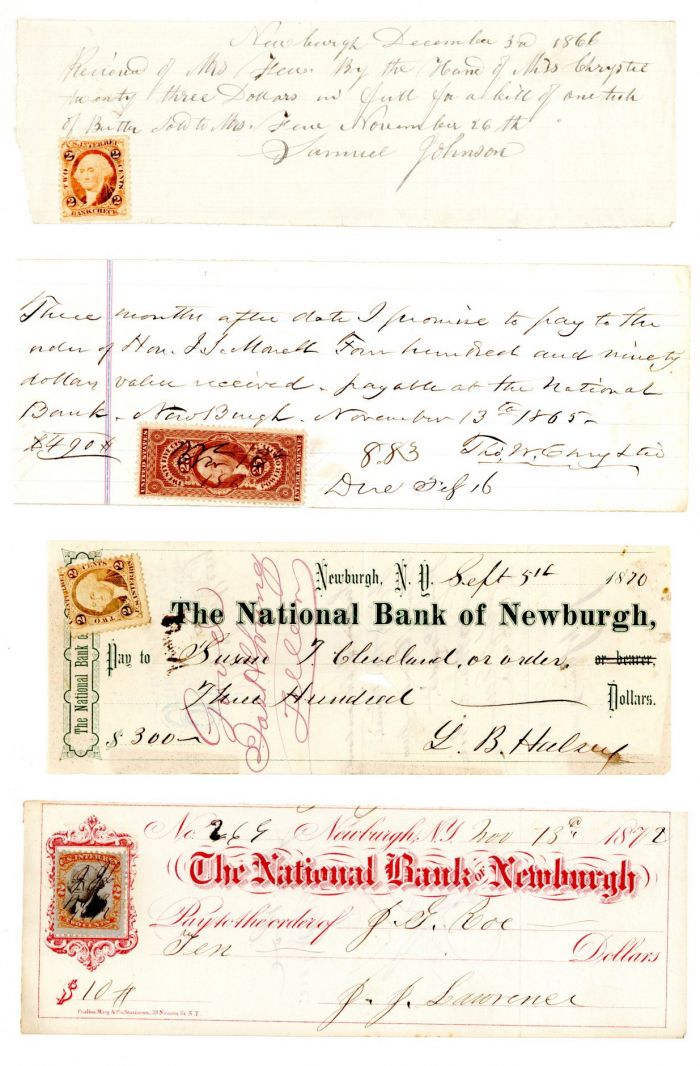 Newburgh December 3d 1866
Received of Mrs By the Hand of Mrs Chrystie
twenty three Dollars in full for a bill of one tub
of Butter Sold to Mrs. November 26th
Samuel Johnson
U.S. INTER. REV.
2 2
TWO CENTS
2 2
BANK CHECK
Three months after date I promise to pay to the
order of Hon. J. J. Monell Four hundred and ninety
dollars value received - payable at the National
Bank - NewBurgh - November 13th 1865-
$490#
883 Tho. W. Chrystie
Due Feb 16
UNITED STATES
25
Newburgh, N.Y. Sept 5th 1870
The National Bank of Newburgh,
Pay to Susan T Cleveland, or order, or bearer,
Three Hundred Dollars.
$300- L. B. Halsey
The National Bank
Teller
2 CENTS 2
2 TWO 2
No. 269 Newburgh, N.Y. Nov 13th 1872
The National Bank of Newburgh
Pay to the order of J. G. Coe
Ten Dollars
$10# J. J. Lawrence
U.S. INTER. REV.
TWO CENTS